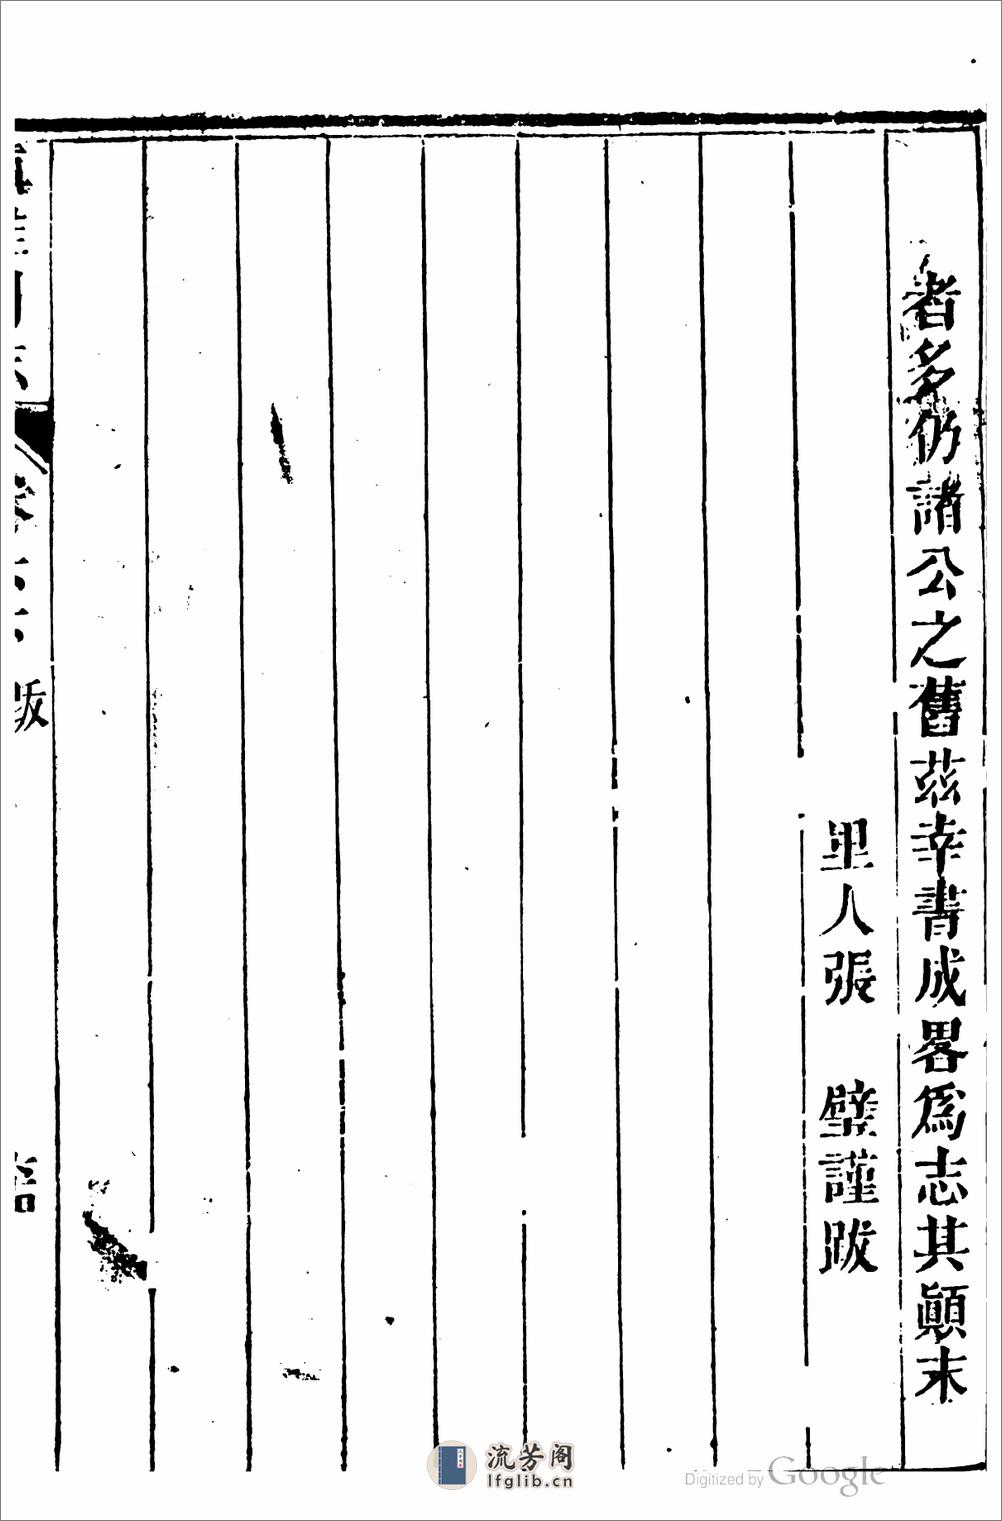 者多仍諸公之舊茲幸書成畧爲志其顛末
里人張　璧謹跋
跋
流芳阁
lfglib.cn
Digitized by Google